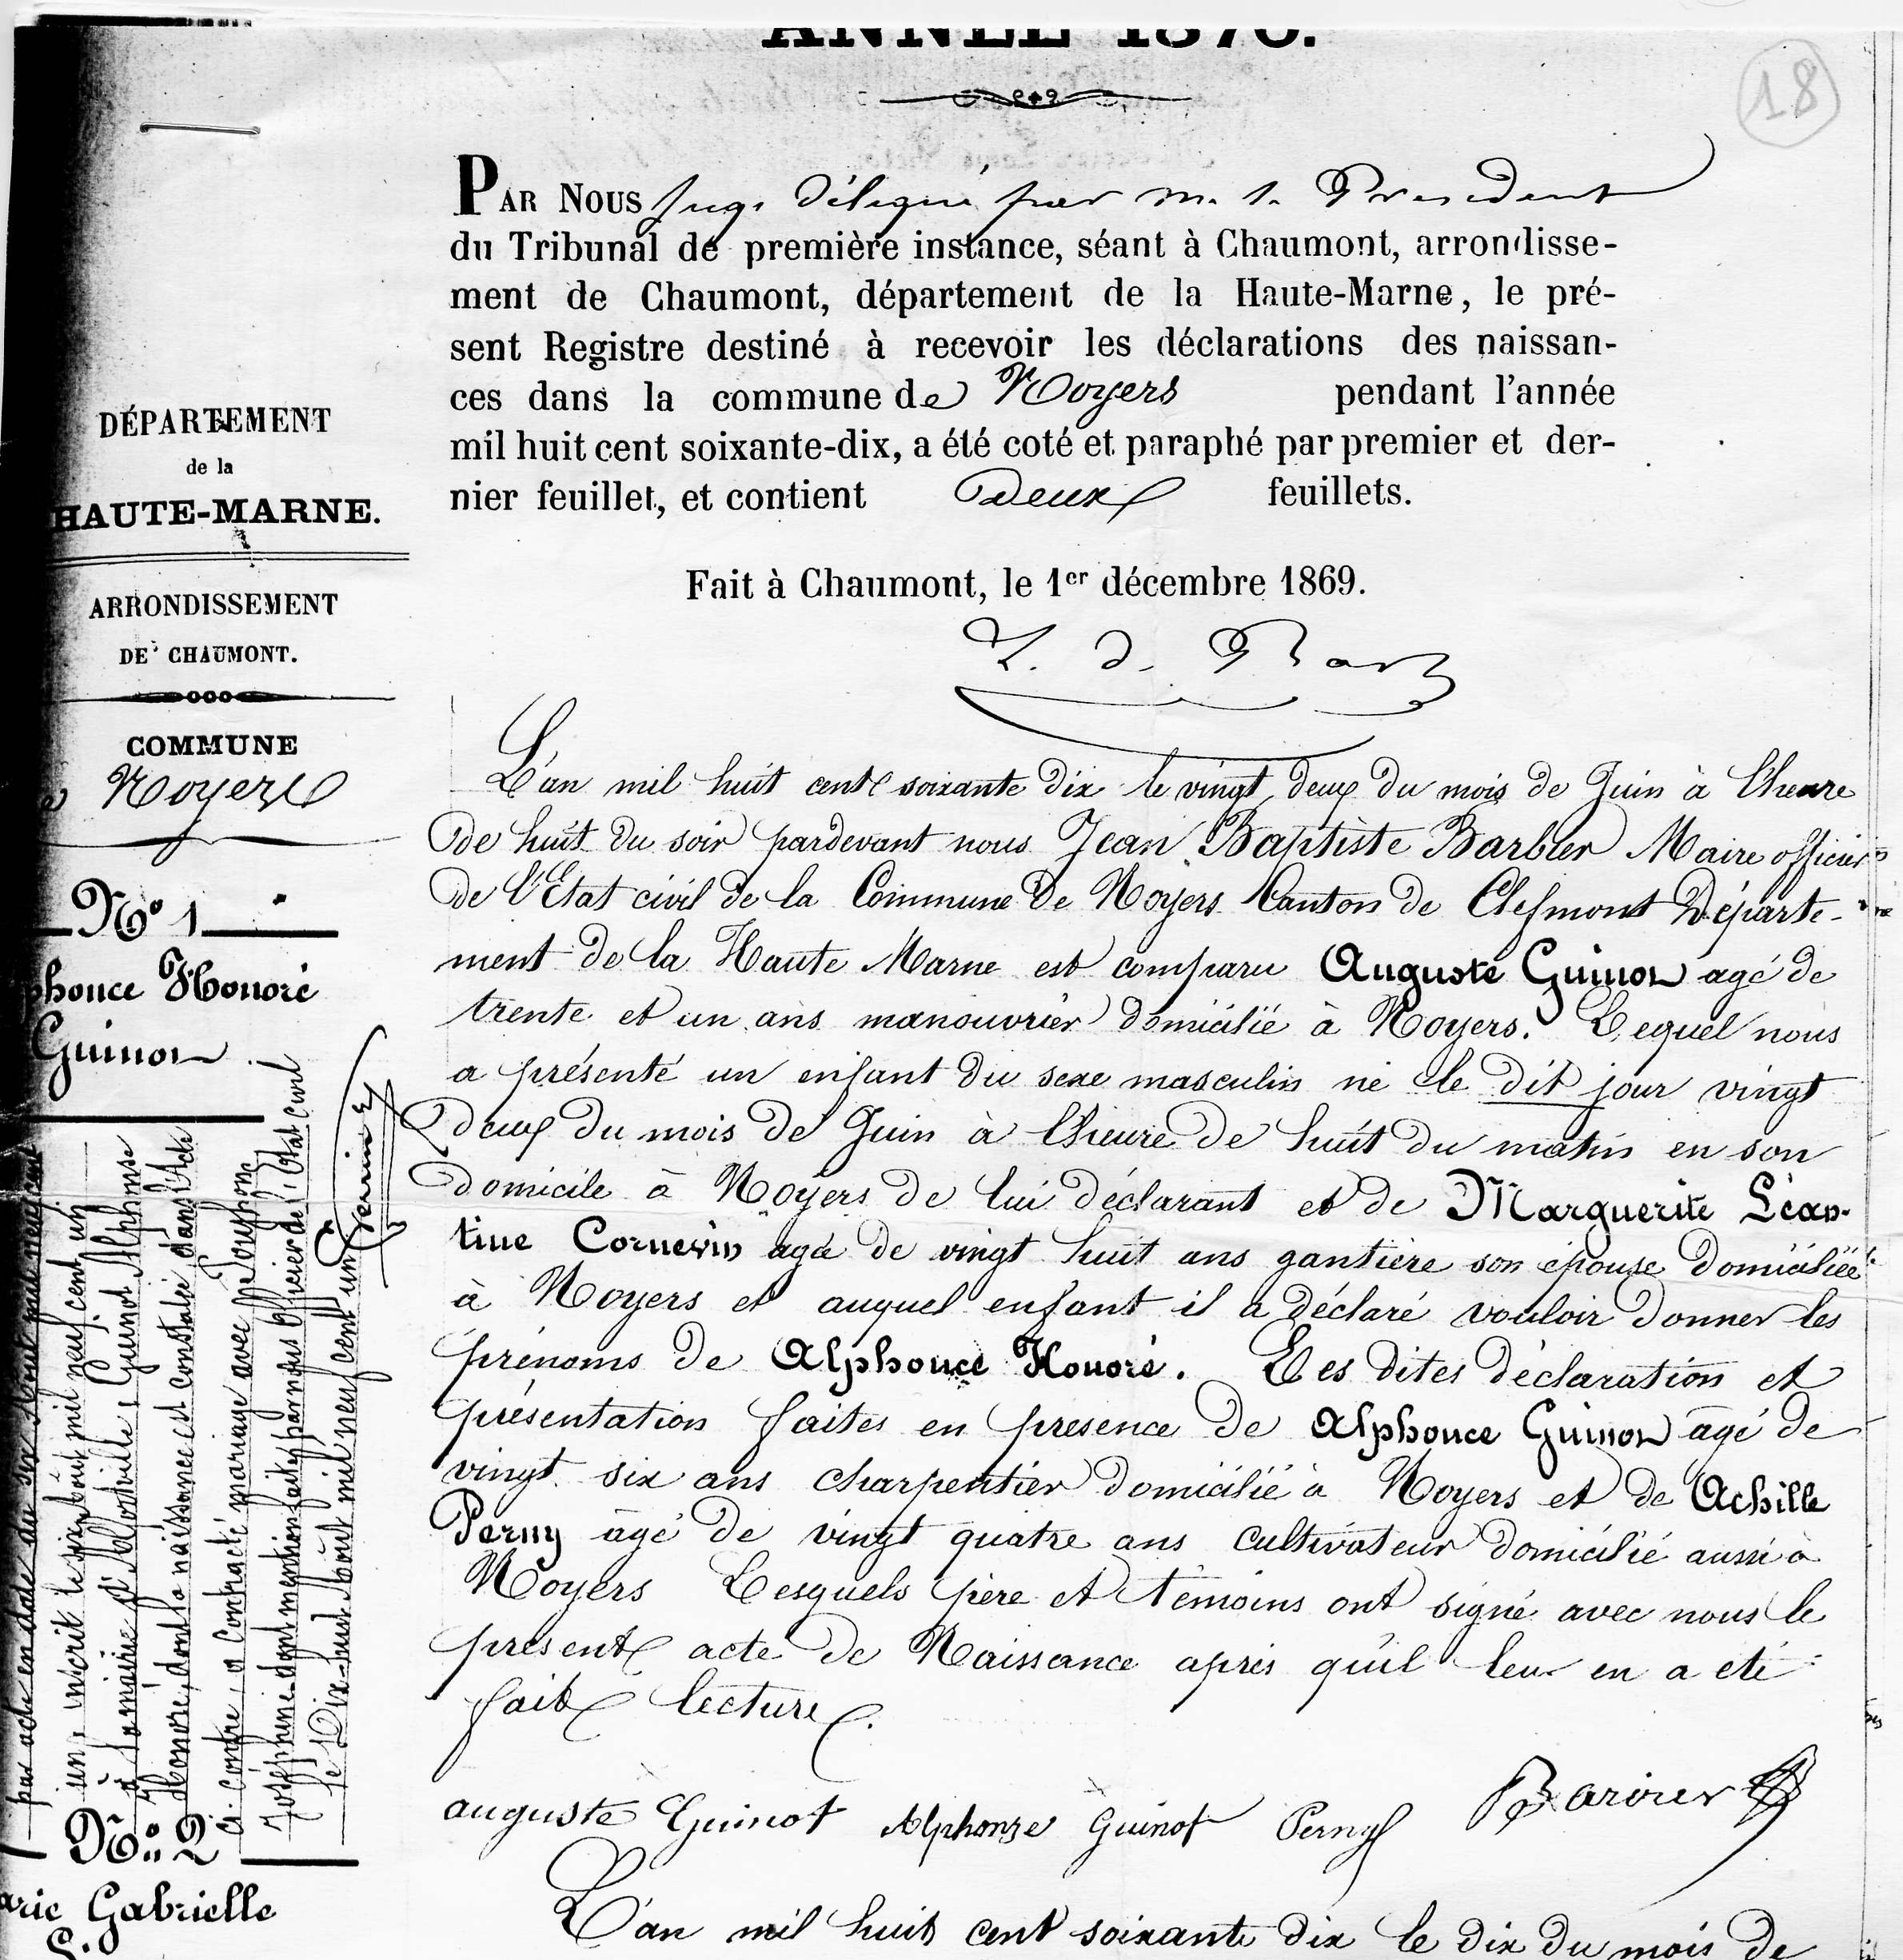 ANNÉE 1870.
18
PAR NOUS Juge délégué par M. le Président
du Tribunal de première instance, séant à Chaumont, arrondisse-
ment de Chaumont, département de la Haute-Marne, le pré-
sent Registre destiné à recevoir les déclarations des naissan-
ces dans la commune de Noyers pendant l'année
mil huit cent soixante-dix, a été coté et paraphé par premier et der-
nier feuillet, et contient Deux feuillets.
Fait à Chaumont, le 1er décembre 1869.
DÉPARTEMENT
de la
HAUTE-MARNE.
ARRONDISSEMENT
DE CHAUMONT.
COMMUNE
Noyers
N° 1
phonce Honoré
Guinot
L'an mil huit cent soixante dix le vingt deux du mois de Juin à l'heure
de huit du soir pardevant nous Jean Baptiste Barbier Maire officier
de l'Etat civil de la Commune de Noyers Canton de Clefmont Départe-
ment de la Haute Marne est comparu Auguste Guinot agé de
trente et un ans manouvrier domicilié à Noyers. Lequel nous
a présenté un enfant du sexe masculin né le dit jour vingt
deux du mois de Juin à l'heure de huit du matin en son
domicile à Noyers de lui déclarant et de Marguerite Léon-
tine Cornevin agée de vingt huit ans gantière son épouse domiciliée
à Noyers et auquel enfant il a déclaré vouloir donner les
prénoms de Alphonce Honoré. Les dites déclaration et
présentation faites en présence de Alphonce Guinot âgé de
vingt six ans charpentier domicilié à Noyers et de Achille
Perny âgé de vingt quatre ans cultivateur domicilié aussi à
Noyers Lesquels père et témoins ont signé avec nous le
présent acte de Naissance après qu'il leur en a été
fait lecture.
auguste Guinot Alphonse Guinot Perny Barbier
par acte en date du six Août mil neuf cent
un, inscrit le six août mil neuf cent un
à la mairie d' Guinot Alphonse
Honoré, dont la naissance est constatée dans l'acte
ci-contre, a contracté mariage avec
Joséphine dont mention faite par nous Officier de l'Etat civil
le Dix-huit Août mil neuf cent un
N° 2
arie Gabrielle
L'an mil huit cent soixante dix le dix du mois de